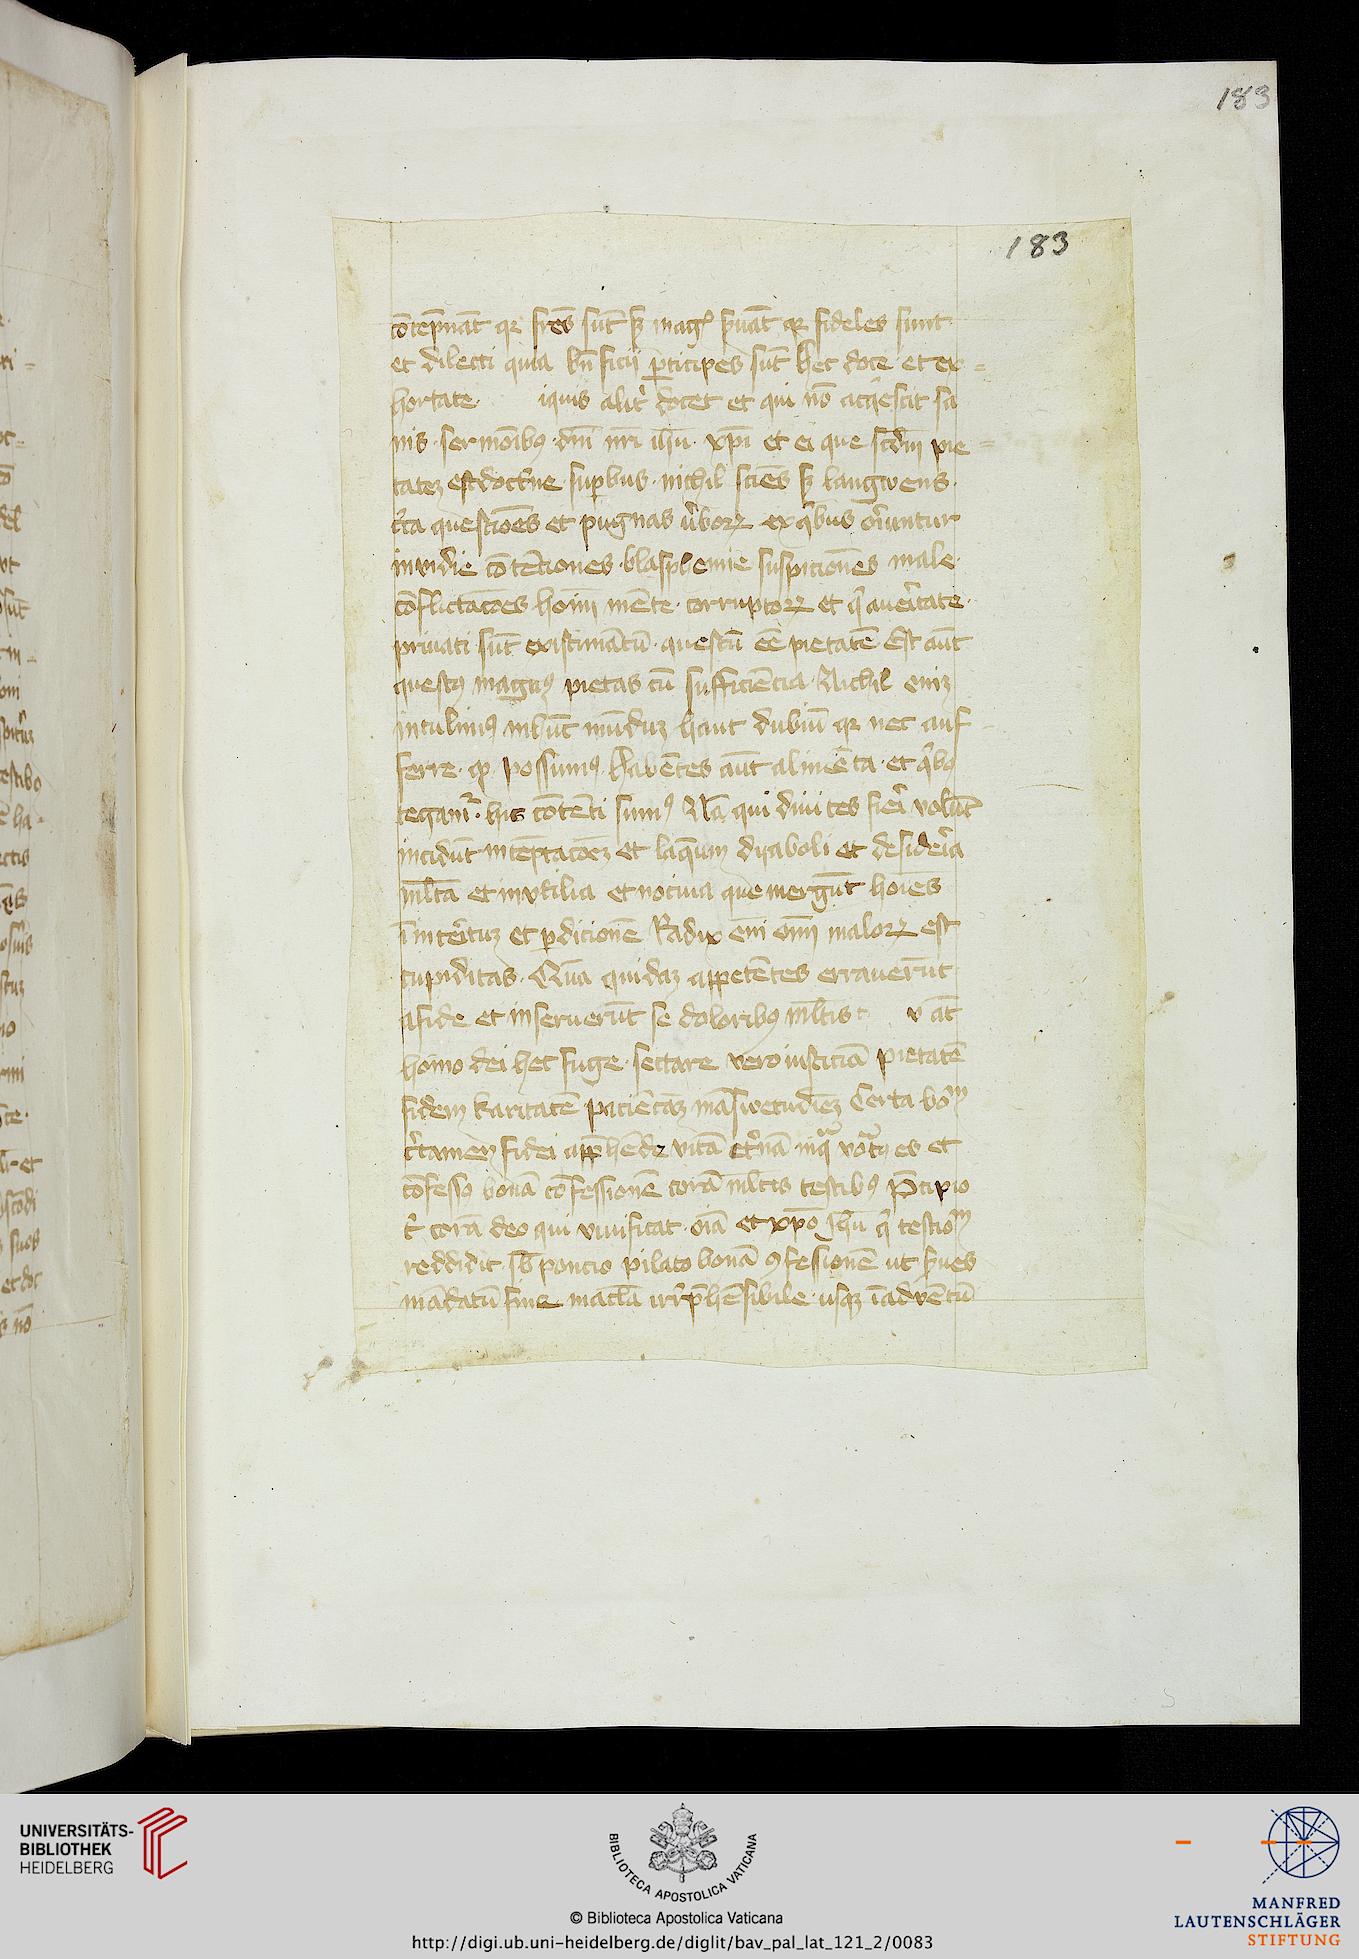 183
183
cōtēpnāt qr frēs sūt sꝫ magꝭ s̄uiāt qr fideles sunt
et dilecti quia bn̄ficii ꝑticipes sūt Hec doce et ex=
hortare iquis alit̓ docet et qui nō acq̓escit sa
nis sermōibꝰ dn̄i nr̄i ih̄u xp̄i et ei que scd̄m pie=
tatez est doct̓ne suꝑbus nichil sciēs sꝫ langwens
c̓ca questiōes et pugnas v̓borꝝ ex q̓bus oriuntur
invidie cōtēciones blasphemie suspiciones male
cōflictacōes hoīm mēte corruptorꝝ et q̓ averitate
privati sūt existimātū questū eē pietatē Est aūt
questꝰ magnꝰ pietas cū sufficiēcia Nichil enīz
intulimꝰ inhūc mūduz haut dubiū qr nec auf
ferre qͦ possumꝰ Habētes aūt alimēta et q̓bꝰ
tegam̓ his cōtēti simꝰ Nā qui divites fieri volūt
incidūt intēptacōez et laq̄um dyaboli et desideria
ml̄ta et invtilia et nociva que mergūt hoīes
ī int̓ituz et ꝑdicionē Radix enī oīm malorꝝ est
cupiditas Quā quidaz appetētes erraverūt
afide et inseruerūt se doloribꝰ ml̄tis v āt
homo dei hec fuge sectare vero iusticiā pietatē
fidem karitatē paciēciāz māswetudīez Certa boͫ
c̓tamen fidei app̄hēde vitā et̓nā inqͣ voͨatꝰ es et
cōfessꝰ bonā cōfessionē corā ml̄tis testibꝰ P̄cipio
t̓ corā deo qui vivificat oīā et xp̄o ih̄u q̓ testioͫ
reddidit sb̄ poncio pilato bonā ꝯfessionē ut s̓ves
mādatū sine macl̄a irr̓p̄hēsibile usqꝫ īadvētū
UNIVERSITÄTS-
BIBLIOTHEK
HEIDELBERG
BIBLIOTECA APOSTOLICA VATICANA
© Biblioteca Apostolica Vaticana
http://digi.ub.uni-heidelberg.de/diglit/bav_pal_lat_121_2/0083
MANFRED
LAUTENSCHLÄGER
STIFTUNG